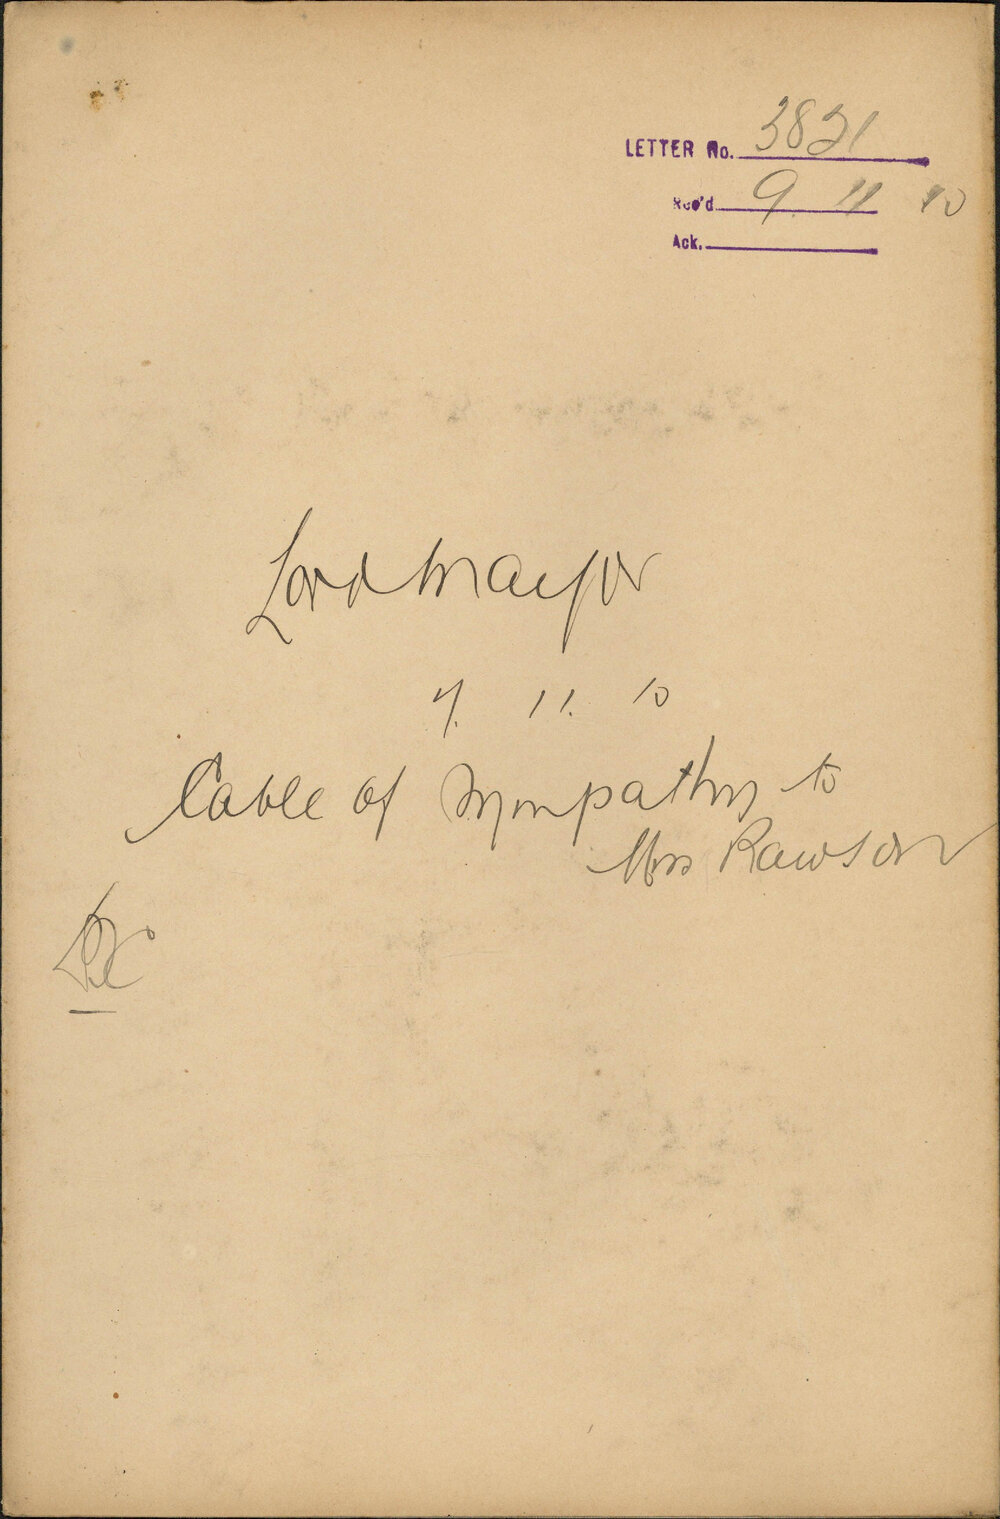 LETTER No. 3821
Rec'd 9. 11 10
Ack.
Lord Mayor
7. 11. 10
Cable of Sympathy to
Mrs Rawson